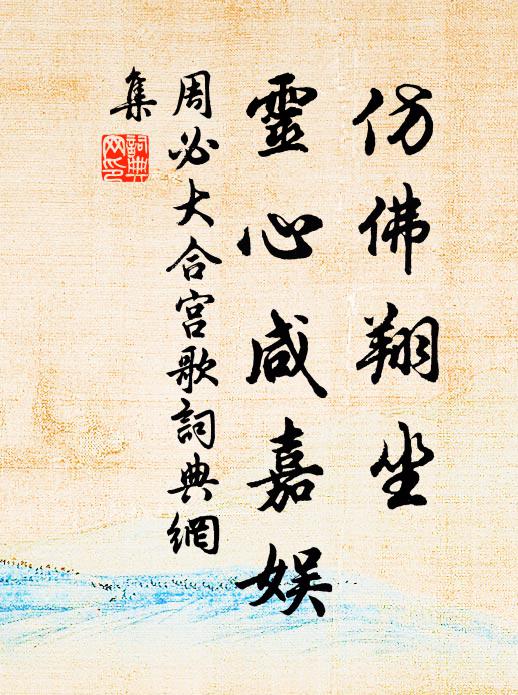 仿佛翔坐
靈心咸嘉娱
周必大合宫歌詞典網
集
詞典網印